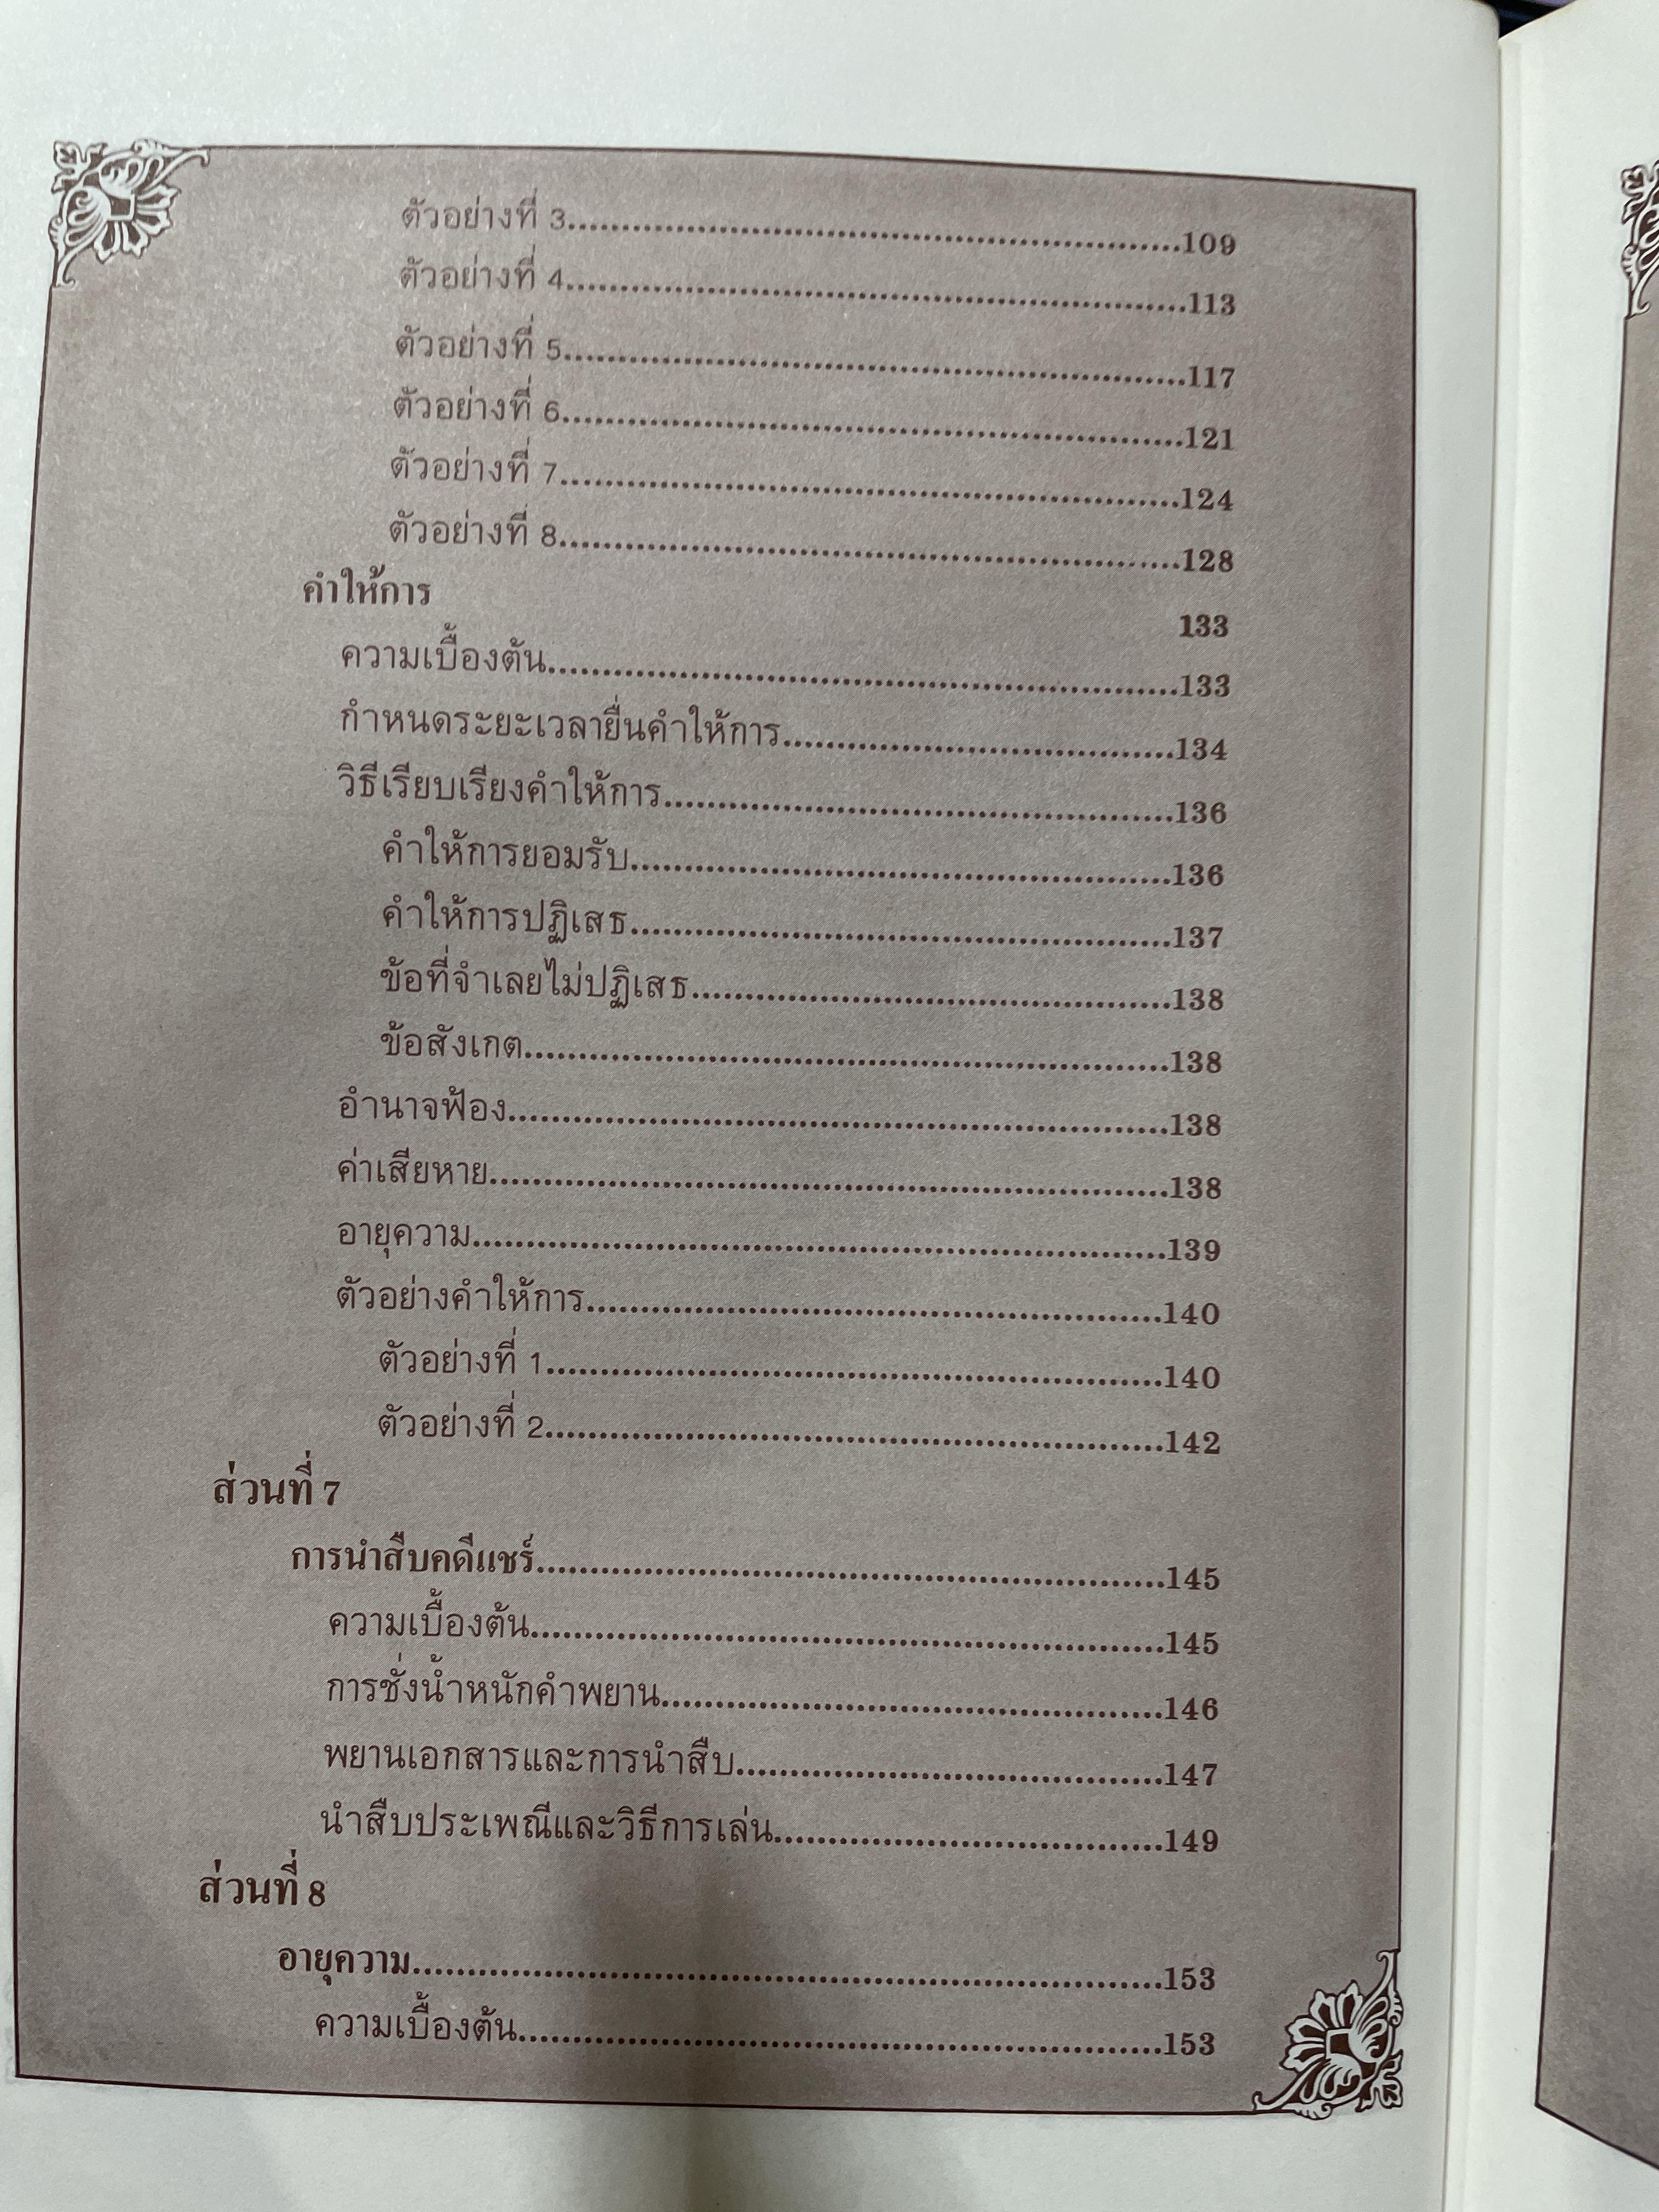 ตัวอย่างที่ 3..........................................................109
ตัวอย่างที่ 4..........................................................113
ตัวอย่างที่ 5..........................................................117
ตัวอย่างที่ 6..........................................................121
ตัวอย่างที่ 7..........................................................124
ตัวอย่างที่ 8..........................................................128
คำให้การ 133
ความเบื้องต้น..........................................................133
กำหนดระยะเวลายื่นคำให้การ....................................134
วิธีเรียบเรียงคำให้การ...............................................136
คำให้การยอมรับ..................................................136
คำให้การปฏิเสธ..................................................137
ข้อที่จำเลยไม่ปฏิเสธ............................................138
ข้อสังเกต...........................................................138
อำนาจฟ้อง.............................................................138
ค่าเสียหาย..............................................................138
อายุความ................................................................139
ตัวอย่างคำให้การ.....................................................140
ตัวอย่างที่ 1.........................................................140
ตัวอย่างที่ 2.........................................................142
ส่วนที่ 7
การนำสืบคดีแชร์..........................................................145
ความเบื้องต้น..........................................................145
การชั่งน้ำหนักคำพยาน..............................................146
พยานเอกสารและการนำสืบ.......................................147
นำสืบประเพณีและวิธีการเล่น....................................149
ส่วนที่ 8
อายุความ.....................................................................153
ความเบื้องต้น...........................................................153